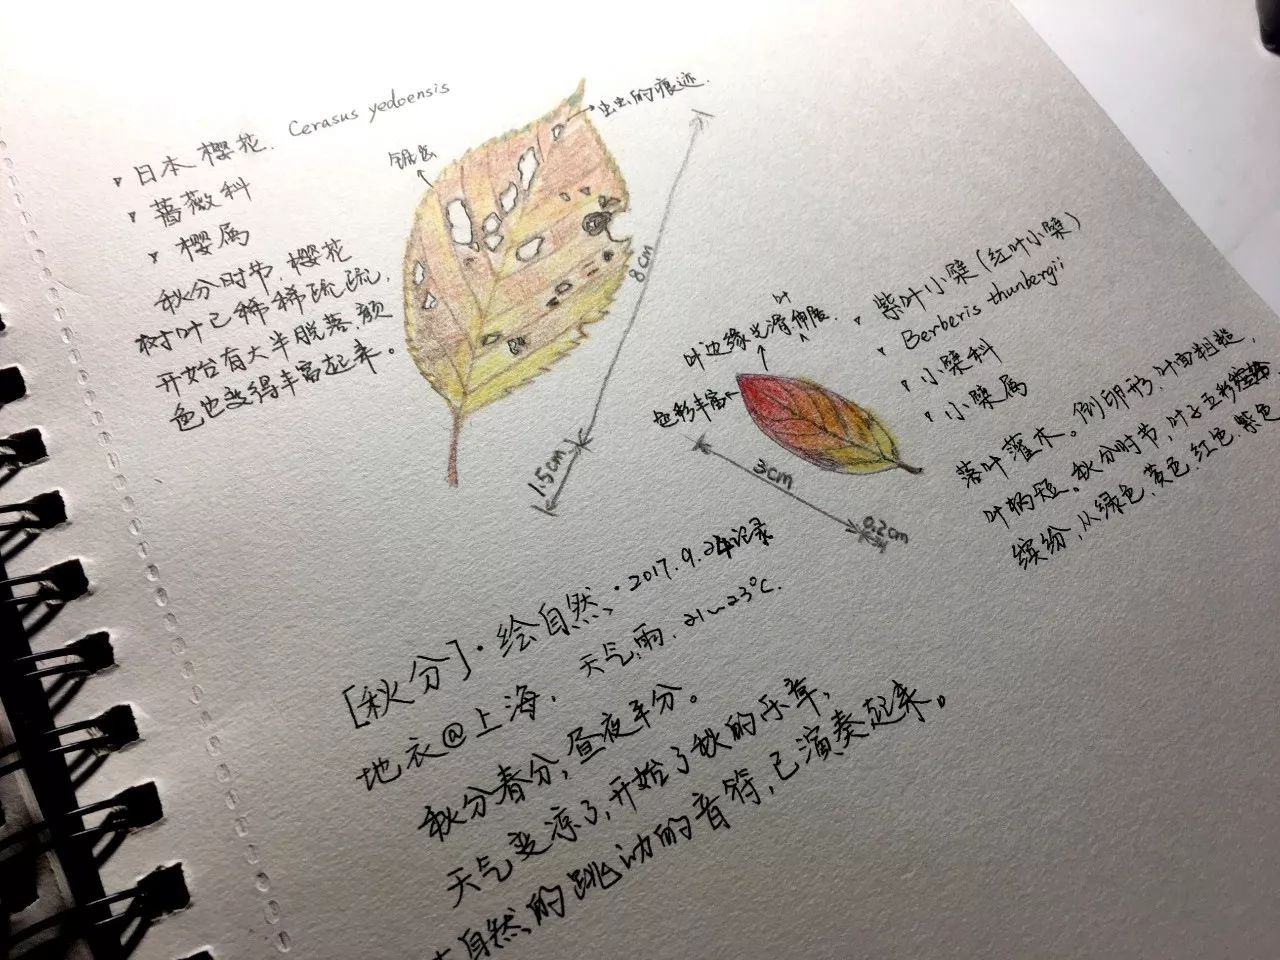 日本樱花. Cerasus yedoensis
蔷薇科
樱属
秋分时节,樱花
树叶已稀稀疏疏,
开始有大半脱落,颜
色也变得丰富起来。
锯齿
虫虫的痕迹.
8cm
1.5cm
叶边缘光滑伸展.
叶
色彩丰富
3cm
0.2cm
紫叶小檗(红叶小檗)
Berberis thunbergii
小檗科
小檗属
落叶灌木。倒卵形,叶面粗糙,
叶柄短。秋分时节,叶子五彩
缤纷,从绿色、黄色、红色、紫色
[秋分]·绘自然·2017.9.24记录
地衣@上海. 天气:雨. 21~23℃.
秋分春分,昼夜平分。
天气变凉了,开始了秋的乐章,
自然的跳动的音符,已演奏起来。